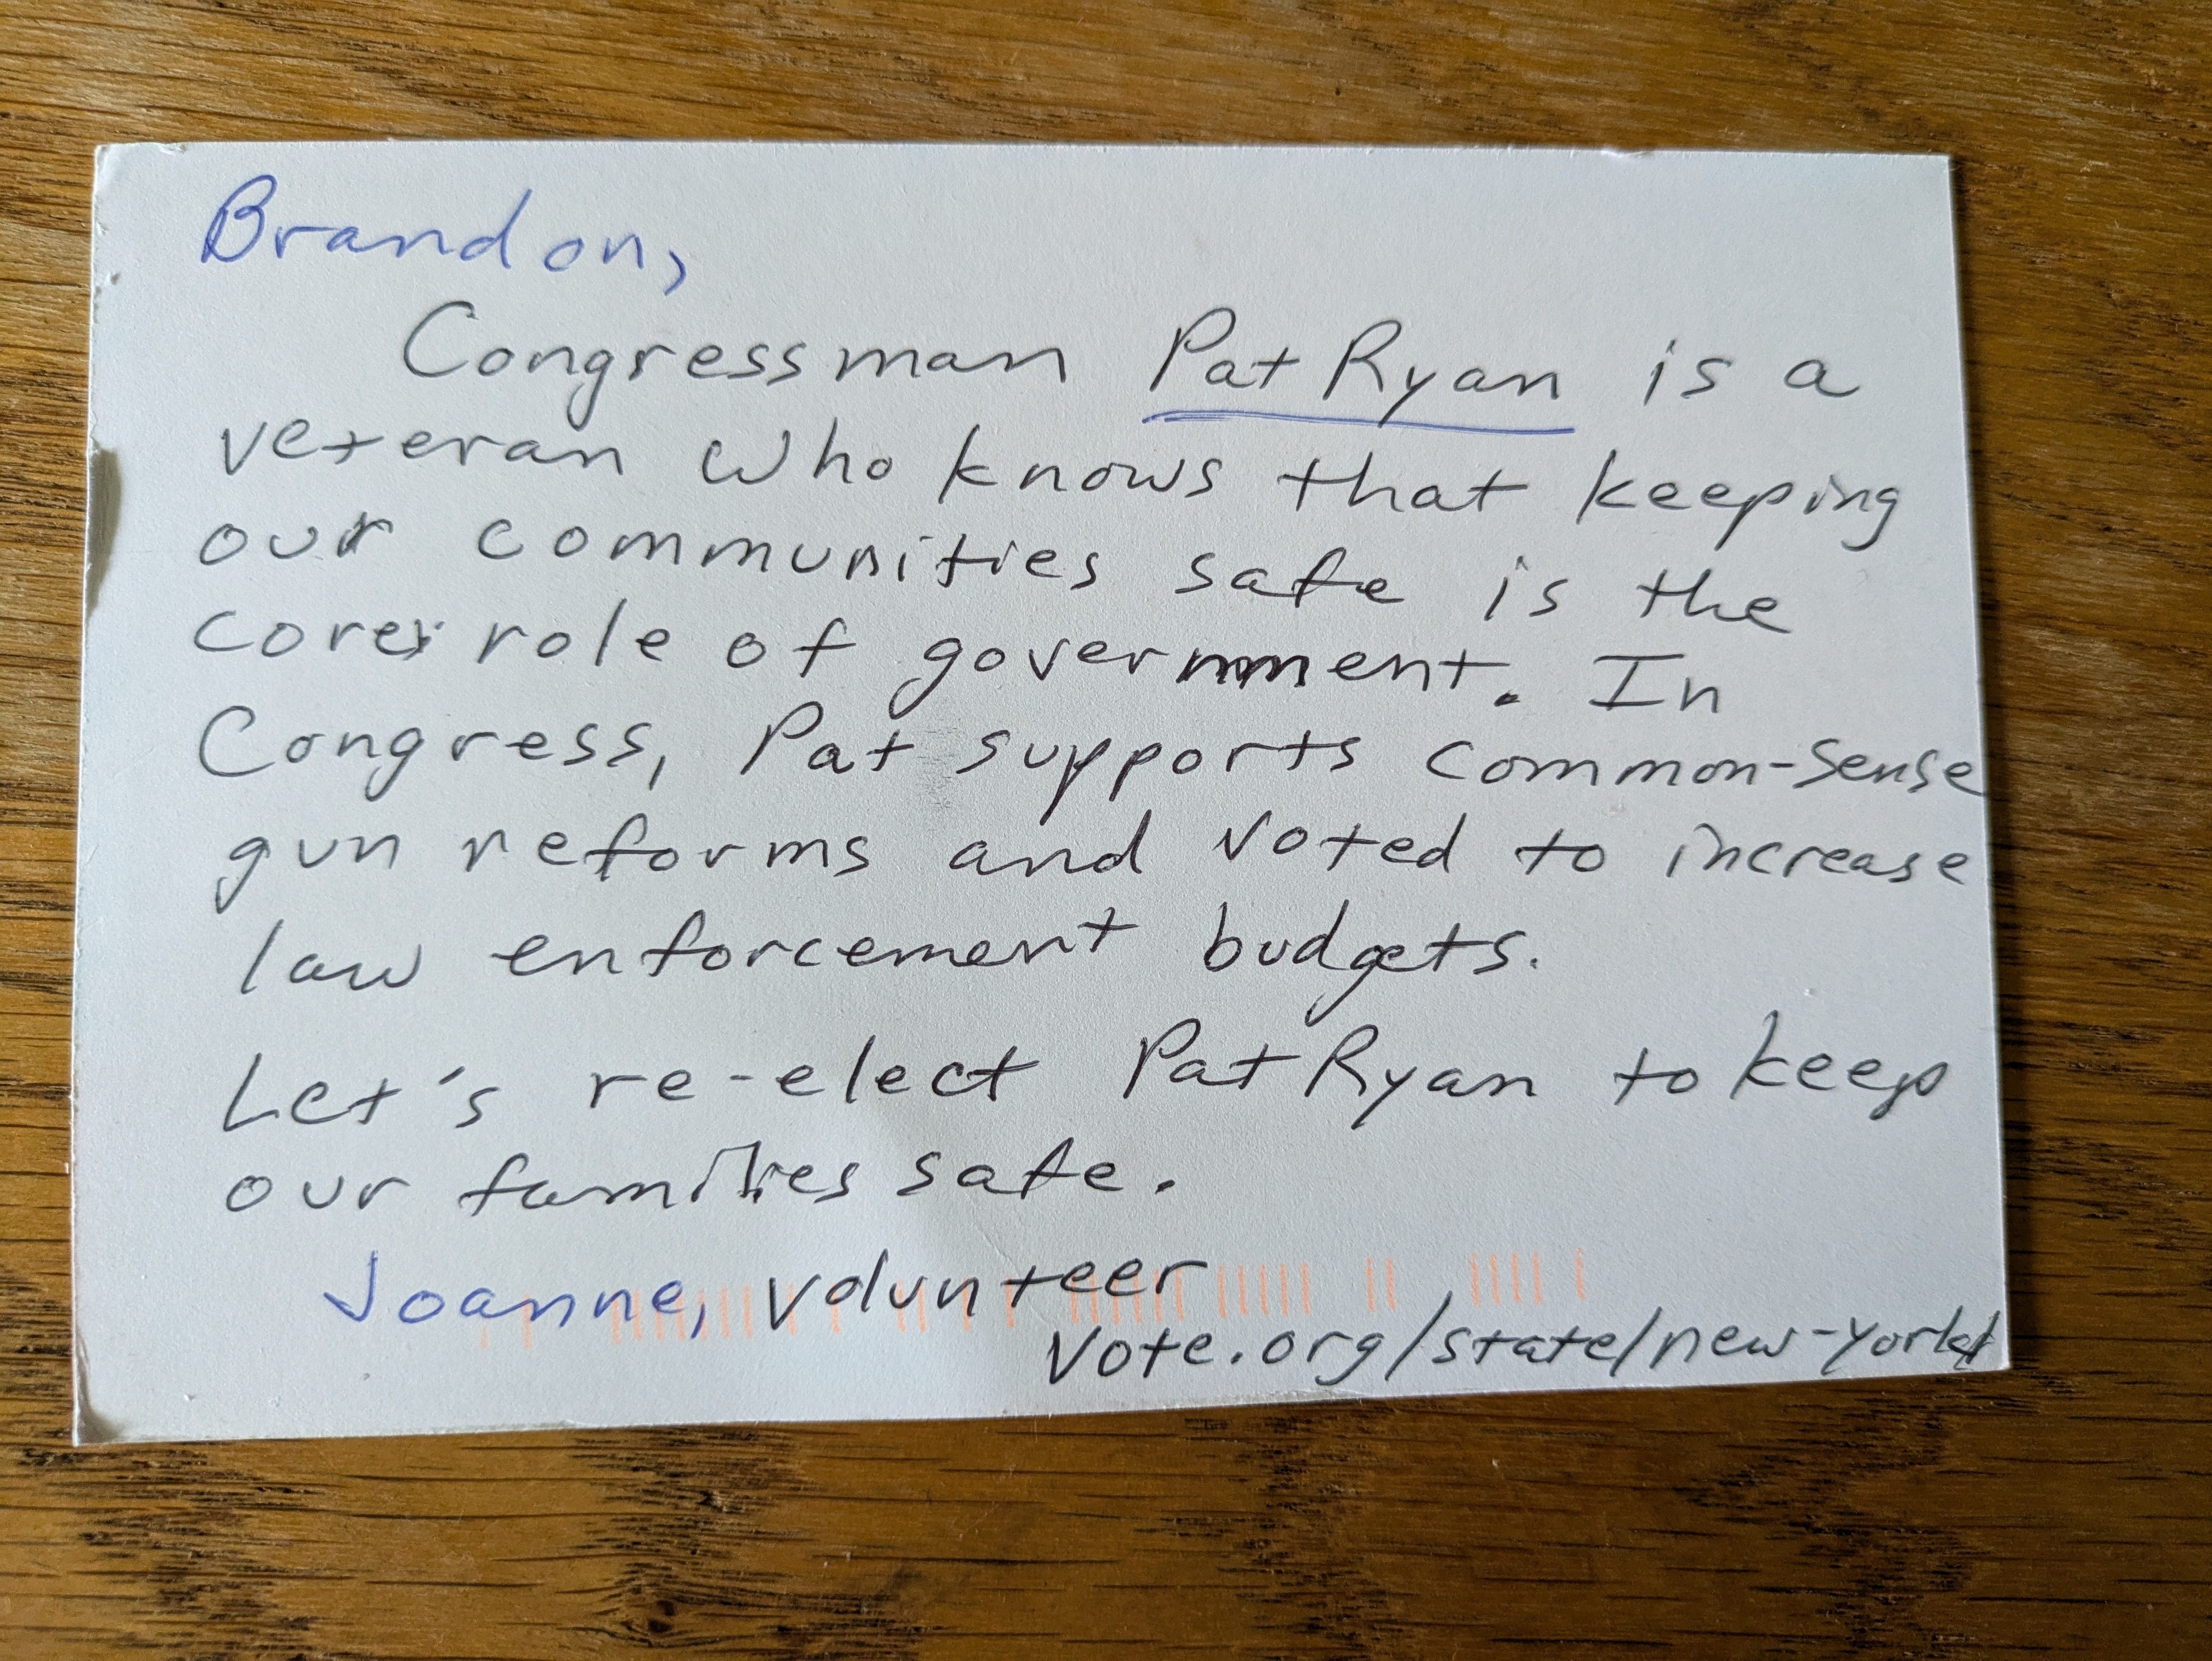 Brandon,
Congressman Pat Ryan is a
veteran who knows that keeping
our communities safe is the
core role of government. In
Congress, Pat supports common-sense
gun reforms and voted to increase
law enforcement budgets.
Let's re-elect Pat Ryan to keep
our families safe.
Joanne, volunteer
vote.org/state/new-york/